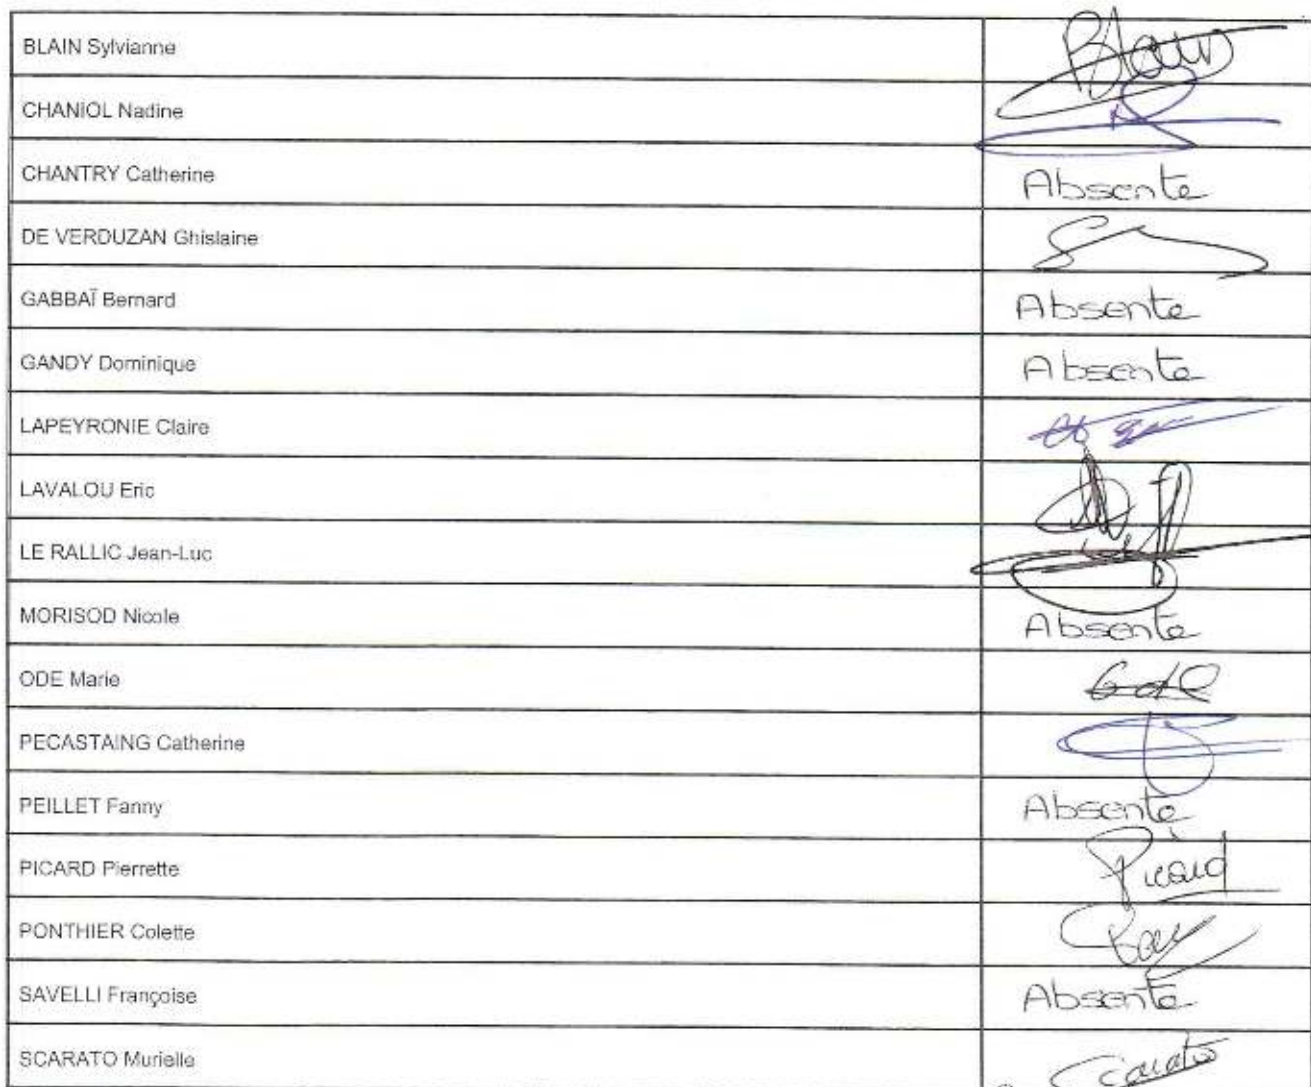 BLAIN Sylvianne Blain
CHANIOL Nadine
CHANTRY Catherine Absente
DE VERDUZAN Ghislaine
GABBAÏ Bernard Absente
GANDY Dominique Absente
LAPEYRONIE Claire
LAVALOU Eric
LE RALLIC Jean-Luc
MORISOD Nicole Absente
ODE Marie
PECASTAING Catherine
PEILLET Fanny Absente
PICARD Pierrette Picard
PONTHIER Colette
SAVELLI Françoise Absente
SCARATO Murielle Scarato